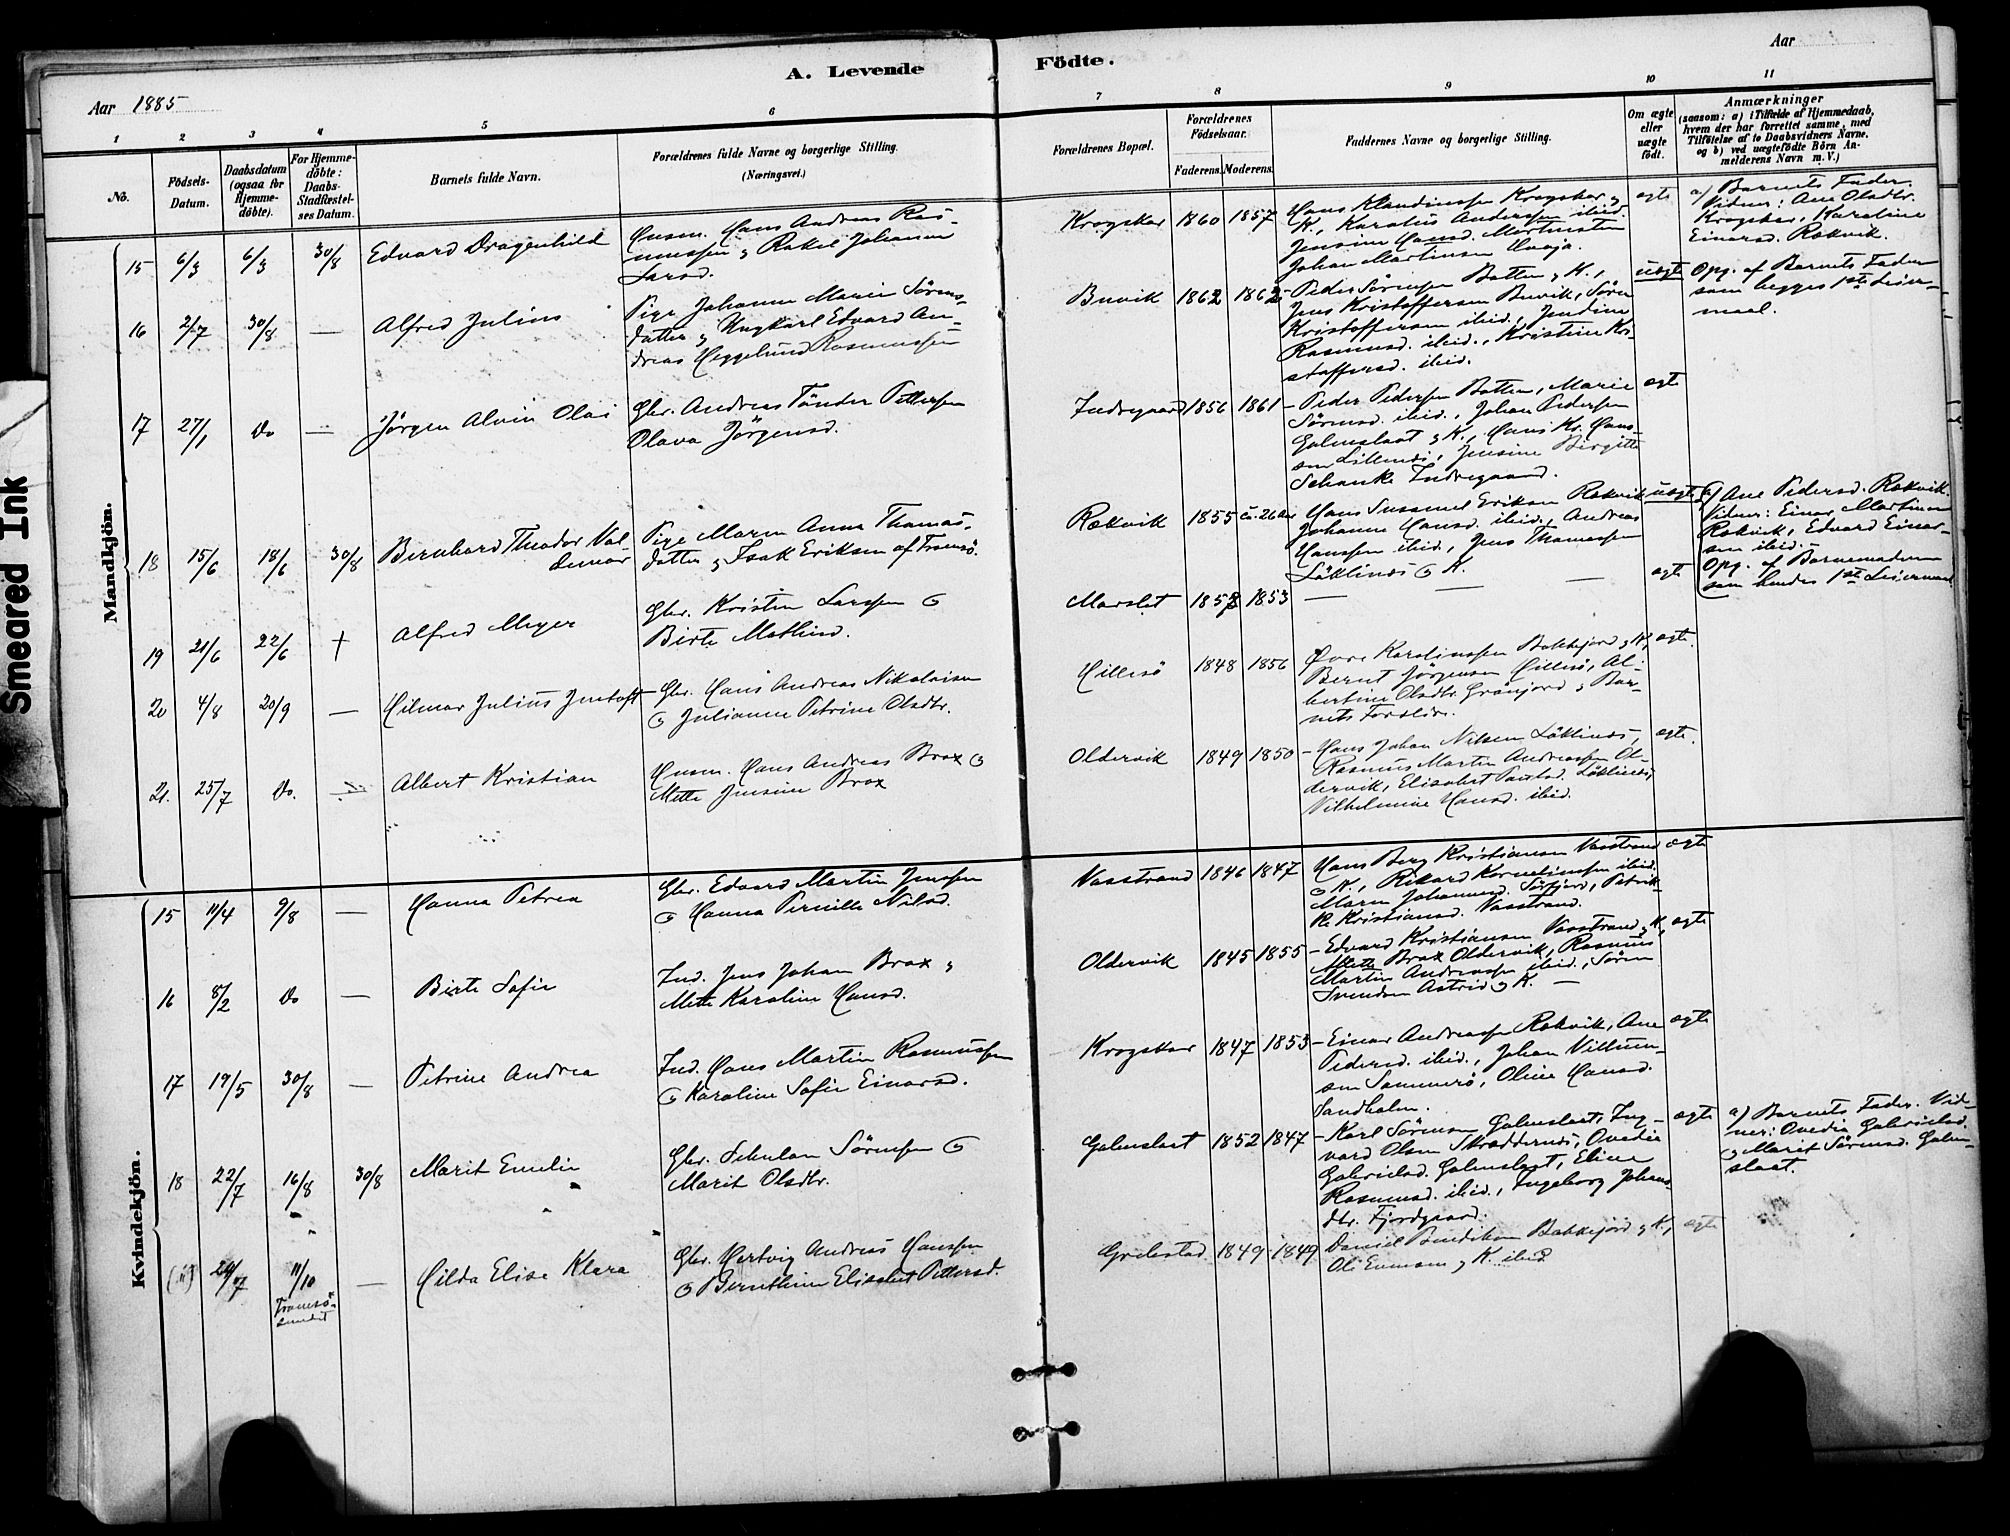 A. Levende Födte.
Aar 1885
Aar
1 2 3 4 5 6 7 8 9 10 11
No.
Födsels-Datum.
Daabsdatum (ogsaa for Hjemme-döbte).
For Hjemme-döbte: Daabs-Stadfæstel-ses Datum.
Barnets fulde Navn.
Forældrenes fulde Navne og borgerlige Stilling.
(Næringsvei.)
Forældrenes Bopæl.
Forældrenes Födselsaar.
Faderens. Moderens.
Faddernes Navne og borgerlige Stilling.
Om ægte eller uægte födt.
Anmærkninger
(saasom: a) i Tilfælde af Hjemmedaab, hvem der har forrettet samme, med Tilföielse af to Daabsvidners Navne. og b) ved uægtefödte Börn An-melderens Navn m. V.)
Smeared Ink
Mandkjön.
15 6/3 6/3 30/8 Edvard Dragenhild
Husm. Hans Andreas Ras-
mussen og Rakel Johanna
Larsd.
Krogskar 1860 1857
Hans Klaudiussen Krogskar og
K, Karolus Anderssen ibid.
Jensine Hansd. Mortensten
Johan Martinsen Kvaja.
ægte
a) Barnets Fader.
Vidner: Ane Olsdtr.
Krogskar, Karoline
Einarsd. Rækvik.
16 2/7 30/8 — Alfred Julius
Pige Johanne Marie Sörens-
datter og Ungkarl Edvard An-
dreas Heggelund Rasmussen
Buvik 1862 1862
Peder Sörensen Botten og K.,
Jens Kristoffersen Buvik, Sören
Kristoffersen ibid., Jendine
Rasmusd. ibid., Kristine Kri-
stoffersd. ibid.
uægte
Opg. af Barnets Fader
som begges 1ste Leier-
maal.
17 27/1 Do — Jörgen Alvin Olai
Gbr. Andreas Tönder Pettersen
Olava Jörgensd.
Indregaard 1856 1861
Peder Pedersen Botten, Marie
Sörensd. ibid., Johan Pedersen
Galnslaat og K., Hans Kr. Hans-
sen Lillenes, Jensine Birgitte
Schanke Indregaard.
ægte
18 15/6 18/6 30/8 Bernhard Theodor Val-
demar
Pige Maren Anna Thomas-
datter og Isak Eriksen af Tromsö.
Rækvik 1855 ca. 26 Aar
Hans Susamel Eriksen Rækvik
Johanna Hansd. ibid., Andreas
Hanssen ibid., Jens Thomassen
Löklinæs og K.
uægte
a) Ane Pedersd. Rækvik.
Vidner: Einar Martinsen
Rækvik, Edvard Einar-
sen ibid.
Opg. af Barnemoderen
som hendes 1ste Leiermaal
19 21/6 22/6 † Alfred Meyer
Gbr. Kristen Larssen og
Birte Mathisd.
Marslet 1853 1853 — — —
ægte
20 4/8 20/9 — Hilmar Julius Jentoft
Gbr. Hans Andreas Nikolaisen
og Julianna Petrine Olsdtr.
Hillesö 1848 1856
Karolinussen Bakkejord og K,
Bernt Jörgensen Hillesö, Al-
bertine Olsdtr. Gränjord og Bar-
nets Forældre.
ægte
21. 25/7 Do. — Albert Kristian
Husm. Hans Andreas Brox og
Mette Jensine Brox
Oldervik 1849 1850
Hans Johan Nilsen Löklinæs,
Rasmus Martin Andreassen Ol-
dervik, Elisabet Paulsd. Löklinæs,
Vilhelmine Hansd. ibid.
ægte.
Kvindekjön.
15 11/4 9/8 — Hanna Petrea
Gbr. Edvard Martin Jenssen
og Hanna Pernille Nilsd.
Vasstrand 1846 1847
Hans Berg Kristiansen Vasstrand
og K., Rikard Korneliussen ibid.
Maren Johannesd. Sörfjord, Petrik-
ke Kristiansd. Vasstrand.
ægte
16 8/2 Do — Birte Sofie
Ind. Jens Johan Brox og
Mette Karoline Hansd.
Oldervik 1845 1855
Edvard Kristiansen Vasstrand og K,
Mette Brox Oldervik, Rasmus
Martin Andreassen ibid., Sören
Svendsen Astrid og K. —
ægte
17 19/5 30/8 — Petrine Andrea
Ind. Hans Martin Rasmussen
og Karoline Sofie Einarsd.
Krogskar 1847 1853
Einar Andreassen Rækvik, Ane
Pedersd. ibid., Johan Villum-
sen Sommerö, Oline Hansd.
Sandholm.
ægte
18 22/7 16/8 30/8 Marit Emelie
Gbr. Sörensen og
Marit Olsdtr.
Galnslaat 1852 1847
Karl Sörensen Galnslaat, Ing-
vard Olsen Skræddernæs, Ovedia
Gabrielsd. Galnslaat, Eline
Rasmusd. ibid., Ingeborg Johans-
dtr. Fjordgaard.
ægte
a) Barnets Fader. Vid-
ner: Ovedia Gabrielsd.
og Marit Sörensd. Galn-
slaat.
24/7 11/10 Tromsö-
sundet
— Hilda Elise Klara
Gbr. Hertvig Andreas Hanssen
og Bernthine Elisabet Pettersd.
Grebestad 1849 1849
Daniel Bendiksen Bakkejord og K,
Ole Enensen og K. ibid
ægte